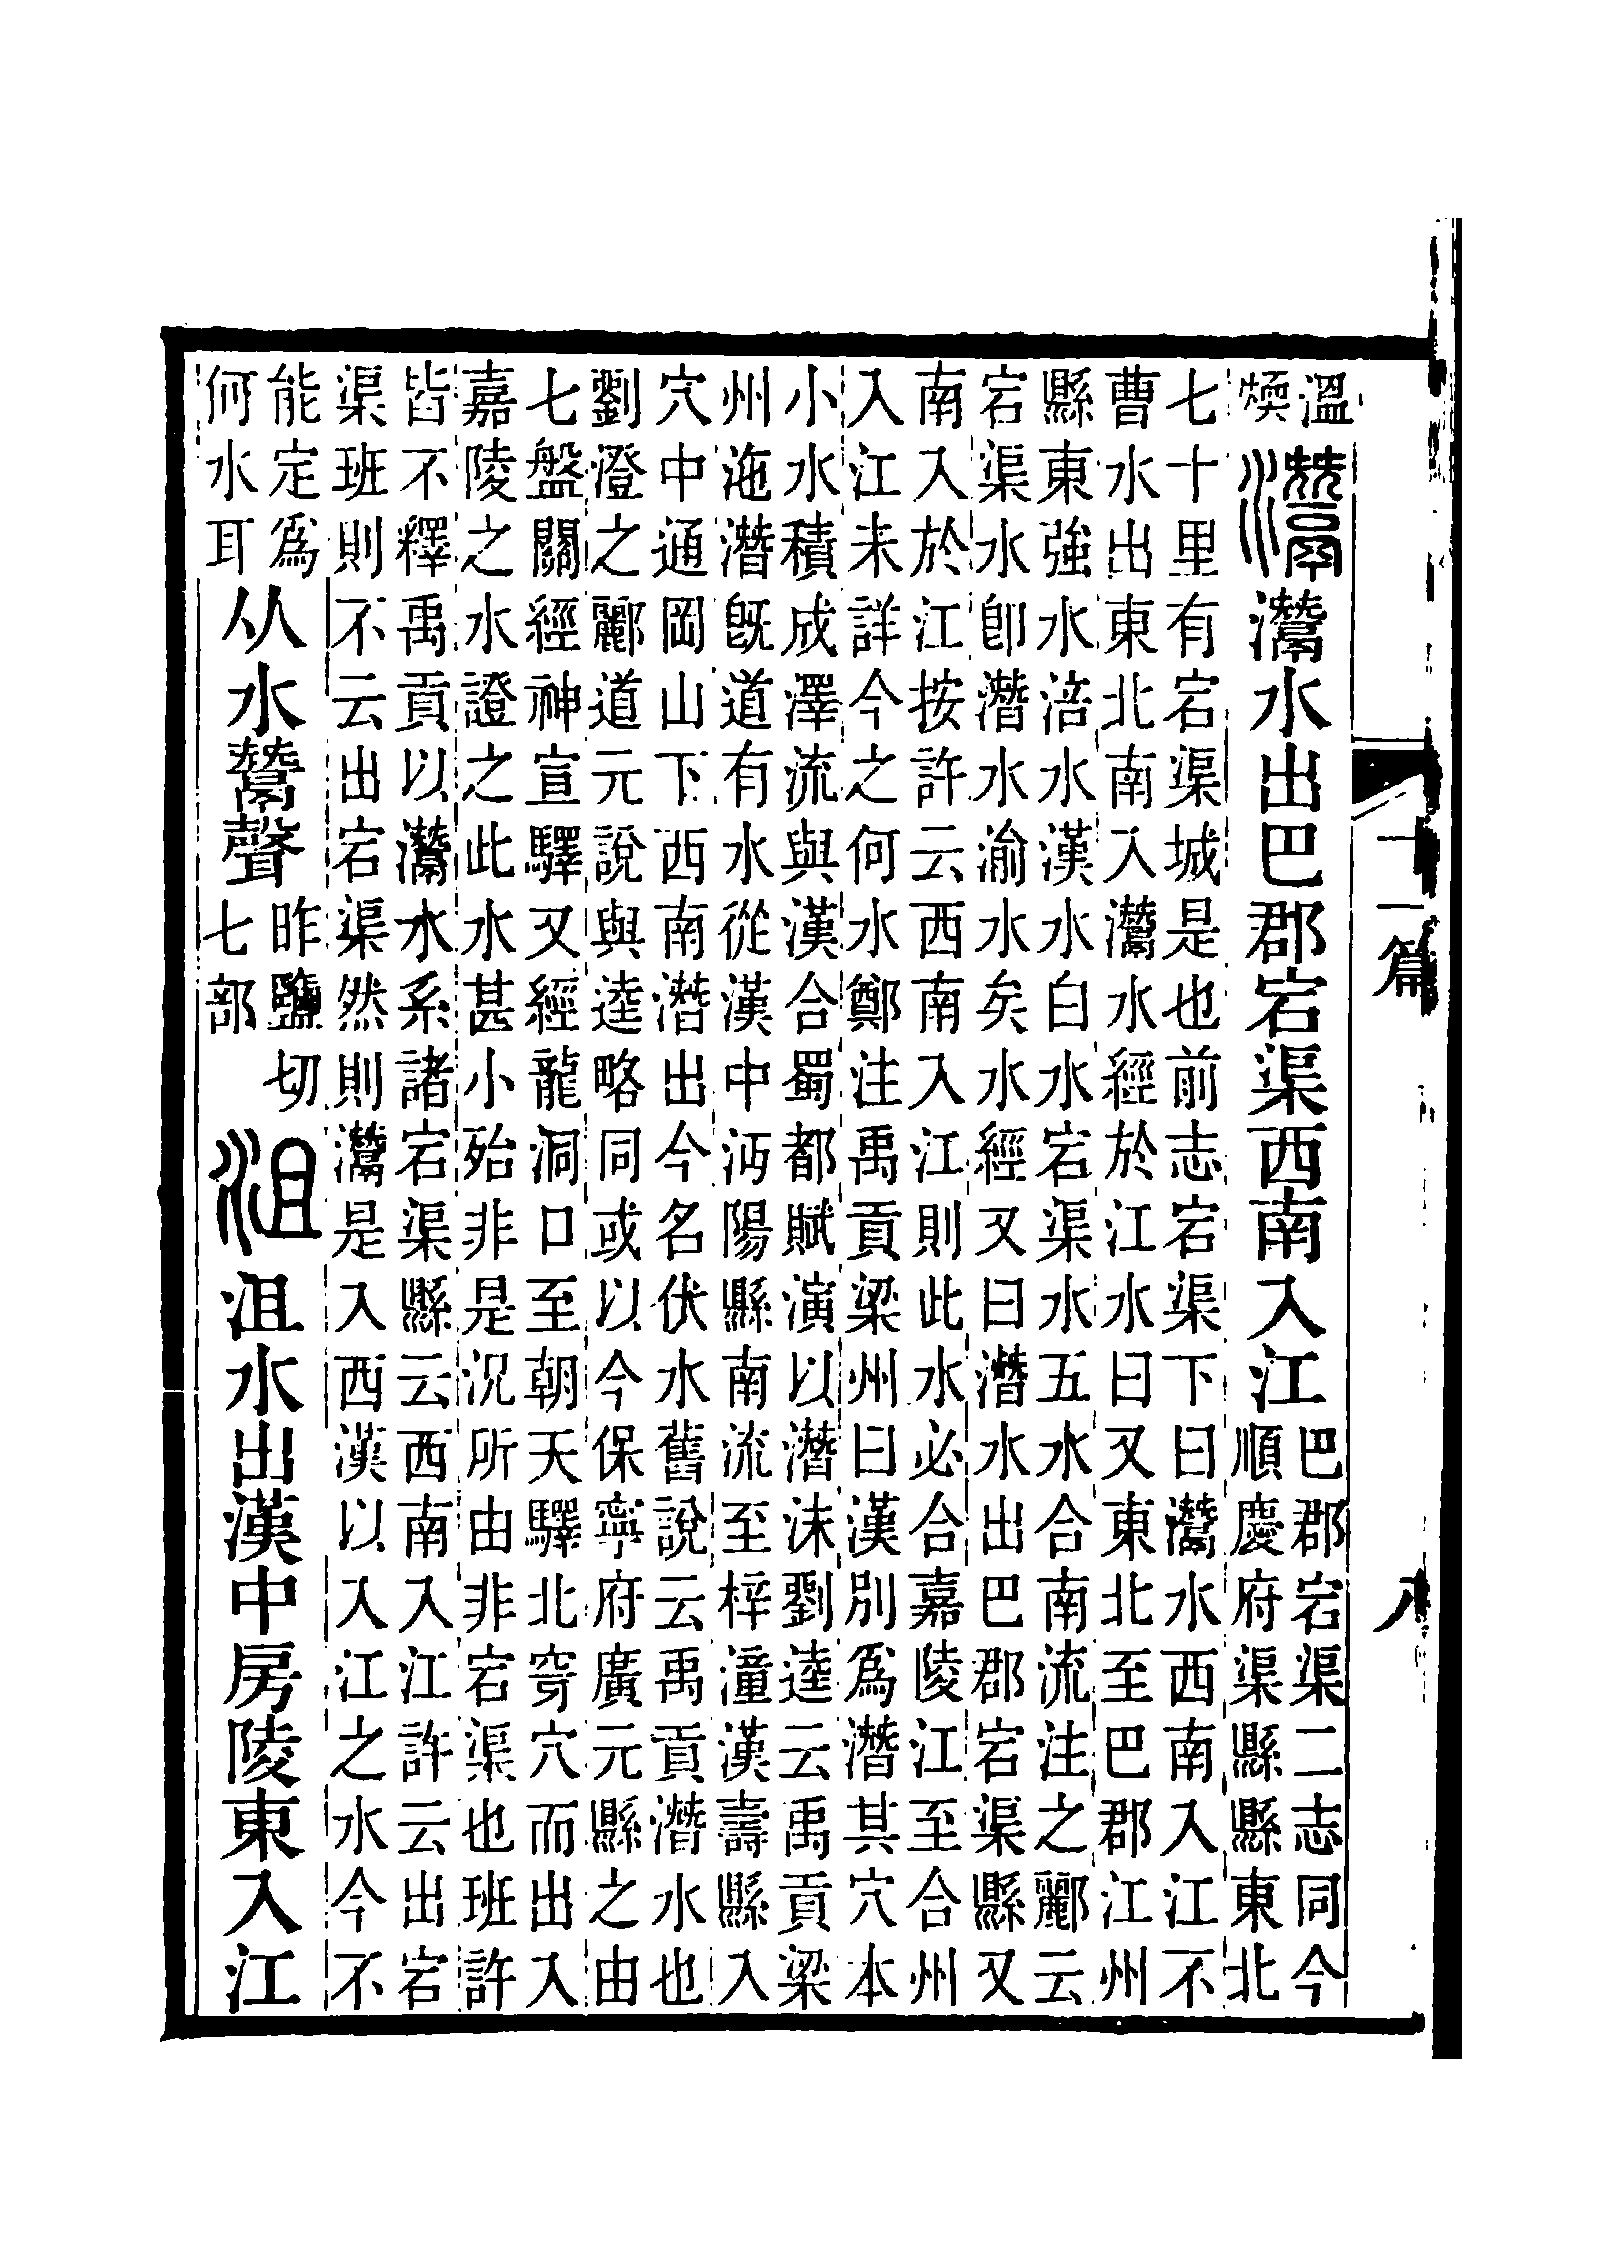 溫
煗
灊
灊水出巴郡宕渠西南入江
巴郡宕渠二志同今
順慶府渠縣縣東北
七十里有宕渠城是也前志宕渠下曰灊水西南入江不
曹水出東北南入灊水經於江水曰又東北至巴郡江州
縣東強水涪水漢水白水宕渠水五水合南流注之酈云
宕渠水卽潛水渝水矣水經又曰潛水出巴郡宕渠縣又
南入於江按許云西南入江則此水必合嘉陵江至合州
入江未詳今之何水鄭注禹貢梁州曰漢別爲潛其穴本
小水積成澤流與漢合蜀都賦演以潛沬劉逵云禹貢梁
州沲潛旣道有水從漢中沔陽縣南流至梓潼漢壽縣入
穴中通岡山下西南潛出今名伏水舊說云禹貢潛水也
劉澄之酈道元說與逵略同或以今保寧府廣元縣之由
七盤關經神宣驛又經龍洞口至朝天驛北穿穴而出入
嘉陵之水證之此水甚小殆非是況所由非宕渠也班許
皆不釋禹貢以灊水系諸宕渠縣云西南入江許云出宕
渠班則不云出宕渠然則灊是入西漢以入江之水今不
能定爲
何水耳
从水鬵聲
昨鹽切
七部
沮
沮水出漢中房陵東入江
十一篇
八